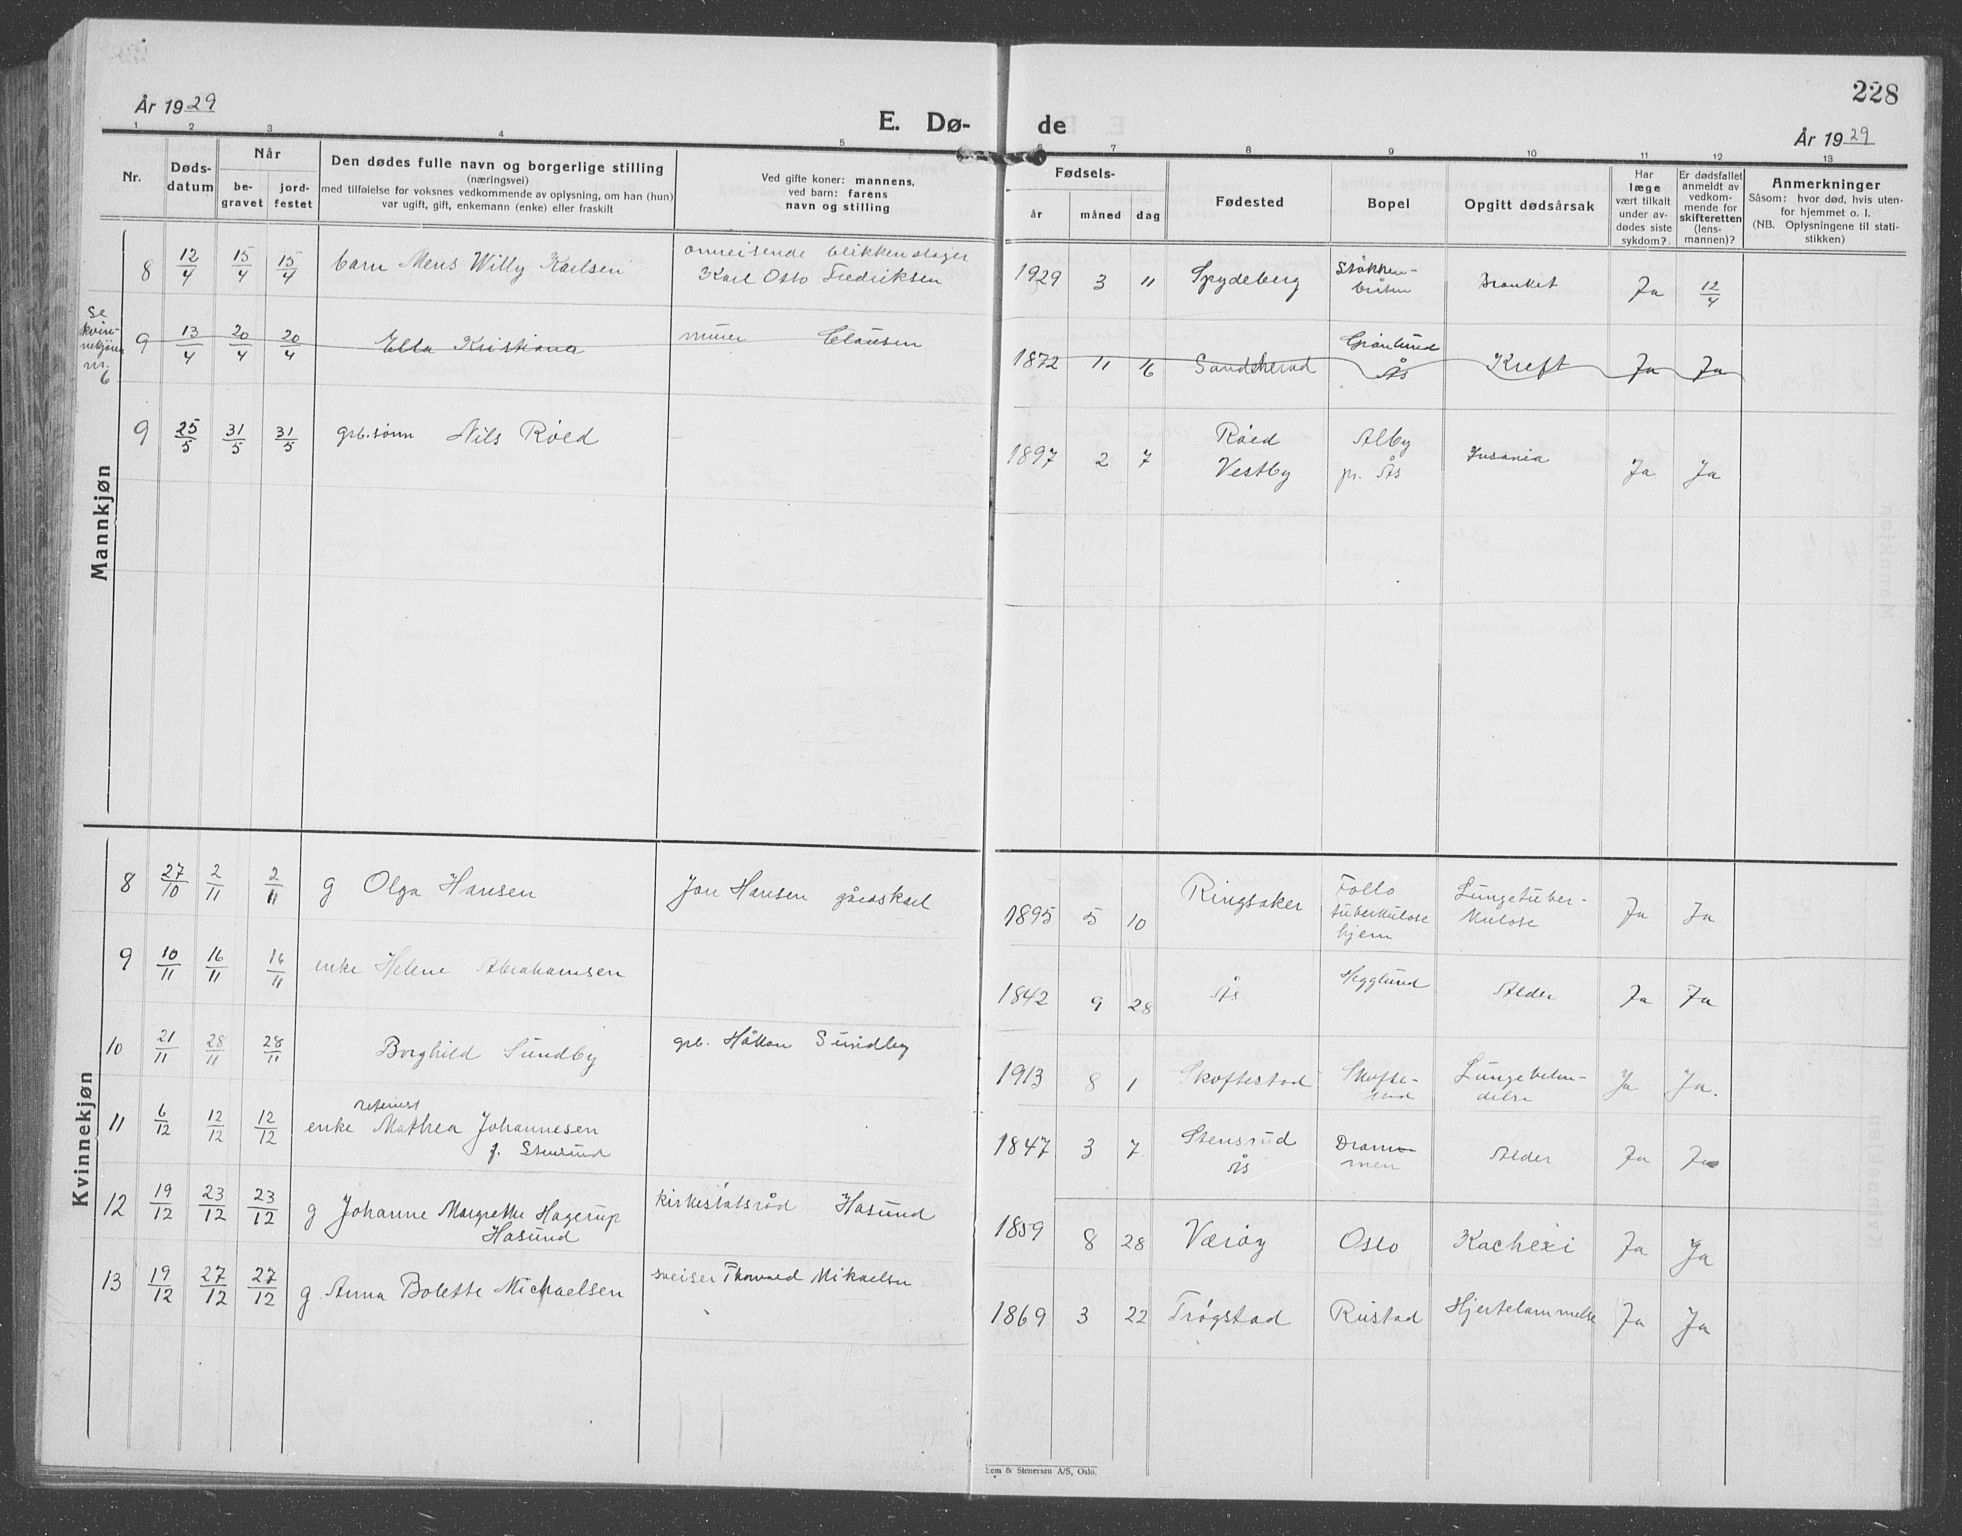 228
År 1929
E. Dø- de
År 1929
1 2 3 4 5 6 7 8 9 10 11 12 13
Nr.
Døds-
datum
Når
be-
gravet
jord-
festet
Den dødes fulle navn og borgerlige stilling
(næringsvei)
med tilføielse for voksnes vedkommende av oplysning, om han (hun)
var ugift, gift, enkemann (enke) eller fraskilt
Ved gifte koner: mannens,
ved barn: farens
navn og stilling
Fødsels-
år måned dag
Fødested
Bopel
Opgitt dødsårsak
Har
læge
vært tilkalt
under av-
dødes siste
sykdom?
Er dødsfallet
anmeldt av
vedkom-
mende for
skifteretten
(lens-
mannen)?
Anmerkninger
Såsom: hvor død, hvis uten-
for hjemmet o. l.
(NB. Oplysningene til stati-
stikken)
Mannkjøn
8 12/4 15/4 15/4 barn Mens Willy Karlsen
omreisende blikkenslager
Karl Otto Fredriksen
1929 3 11 Spydeberg
Støkken-
bråten
Bronkit Ja 12/4
Se
kvin-
nekjøn
nr.
6
9 13/4 20/4 20/4 Ella Kristiana murer Clausen
1872 11 16 Sandeherad
Grønlund
Ås
Kreft Ja Ja
9 25/5 31/5 31/5 grb.sønn Nils Røed
1897 2 7
Røed
Vestby
Alby
pr. Ås
Insania Ja Ja
Kvinnekjøn
8 27/10 2/11 2/11 g Olga Hansen Jon Hansen gårdskarl
1895 5 10 Ringsaker
Follo
tuberkulose
hjem
Lungetuber-
kulose
Ja Ja
9 10/11 16/11 16/11 enke Helene Abrahamsen
1842 9 28 Ås Hegglund Alder Ja Ja
10 21/11 28/11 28/11 Borghild Sundby grb. Håkon Sundby
1913 8 1 Skoftestad
Skofte-
stad
Lungebeten-
delse
Ja Ja.
11 6/12 12/12 12/12 enke Mathea Johannesen
f. Stensrud
1847 3 7
Stensrud
Ås
Dram-
men
Alder Ja Ja
12 19/12 23/12 23/12 g Johanne Margrethe Hagerup
Hasund
kirkestatsråd Hasund
1859 8 28 Værøy Oslo Kachexi Ja Ja
13 19/12 27/12 27/12 g Anna Bolette Michaelsen sveiser Thorvald Mikaelsen
1869 3 22 Trøgstad Rustad Hjertelammelse Ja Ja
Sem & Stenersen A/S, Oslo.